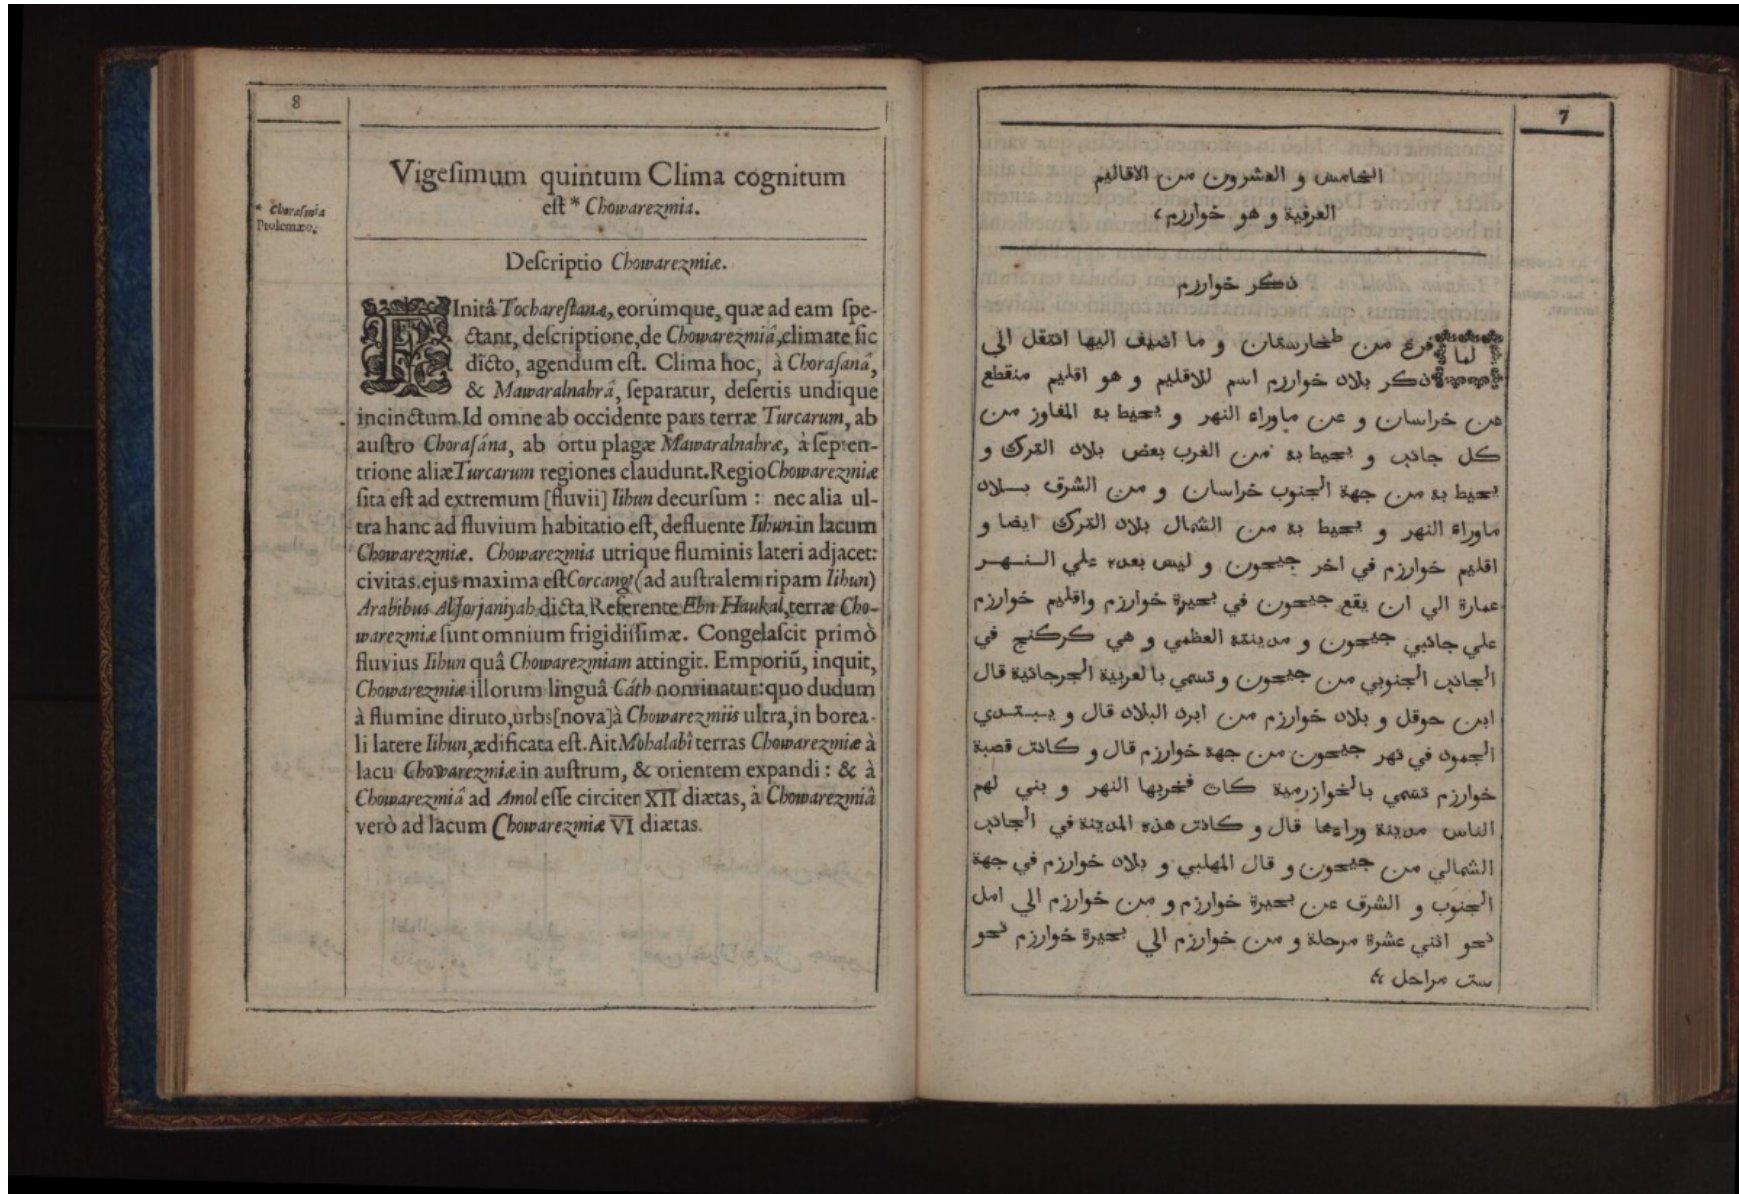 8
Vigeſimum quintum Clima cognitum
eſt * Chowarezmia.
* Choraſmia
Ptolemæo.
Deſcriptio Chowarezmiæ.
FInitâ Tochareſtanæ, eorúmque, quæ ad eam ſpe-
ctant, deſcriptione, de Chowarezmiâ, climate ſic
dicto, agendum eſt. Clima hoc, à Choraſanâ,
& Mawaralnahrâ, ſeparatur, deſertis undique
incinctum. Id omne ab occidente pars terræ Turcarum, ab
auſtro Choraſána, ab ortu plagæ Mawaralnahræ, à ſepten-
trione aliæ Turcarum regiones claudunt. Regio Chowarezmiæ
ſita eſt ad extremum [fluvii] Iihun decurſum : nec alia ul-
tra hanc ad fluvium habitatio eſt, defluente Iihun in lacum
Chowarezmiæ. Chowarezmia utrique fluminis lateri adjacet:
civitas ejus maxima eſt Corcang (ad auſtralem ripam Iihun)
Arabibus Al Jorjaniyah dicta. Referente Ebn Haukal, terræ Cho-
warezmiæ ſunt omnium frigidiſſimæ. Congelaſcit primò
fluvius Iihun quâ Chowarezmiam attingit. Emporiū, inquit,
Chowarezmiæ illorum linguâ Cáth nominatur: quo dudum
à flumine diruto, urbs [nova] à Chowarezmiis ultra, in borea-
li latere Iihun, ædificata eſt. Ait Mohalabî terras Chowarezmiæ à
lacu Chowarezmiæ in auſtrum, & orientem expandi : & à
Chowarezmiâ ad Amol eſſe circiter XII diætas, à Chowarezmiâ
verò ad lacum Chowarezmiæ VI diætas.
7
الخامس و العشرون من الاقاليم
العرفية و هو خوارزم،
ذكر خوارزم
لما فرغ من طخارستان و ما اضيف اليها انتقل الي
ذكر بلاد خوارزم اسم للاقليم و هو اقليم منقطع
عن خراسان و عن ماوراء النهر و يحيط به المفاوز من
كل جانب و يحيط به من الغرب بعض بلاد الترك و
يحيط به من جهة الجنوب خراسان و من الشرق بلاد
ماوراء النهر و يحيط به من الشمال بلاد الترك ايضا و
اقليم خوارزم في اخر جيحون و ليس بعده علي النهر
عمارة الي ان يقع جيحون في بحيرة خوارزم واقليم خوارزم
علي جانبي جيحون و مدينته العظمي و هي كركنج في
الجانب الجنوبي من جيحون و تسمي بالعربية الجرجانية قال
ابن حوقل و بلاد خوارزم من ابرد البلاد قال و يبتدي
الجمود في نهر جيحون من جهة خوارزم قال و كانت قصبة
خوارزم تسمي بالخوازرمية كاث فخربها النهر و بني لهم
الناس مدينة وراءها قال و كانت هذه المدينة في الجانب
الشمالي من جيحون و قال المهلبي و بلاد خوارزم في جهة
الجنوب و الشرق عن بحيرة خوارزم و من خوارزم الي امل
نحو اثني عشرة مرحلة و من خوارزم الي بحيرة خوارزم نحو
ست مراحل